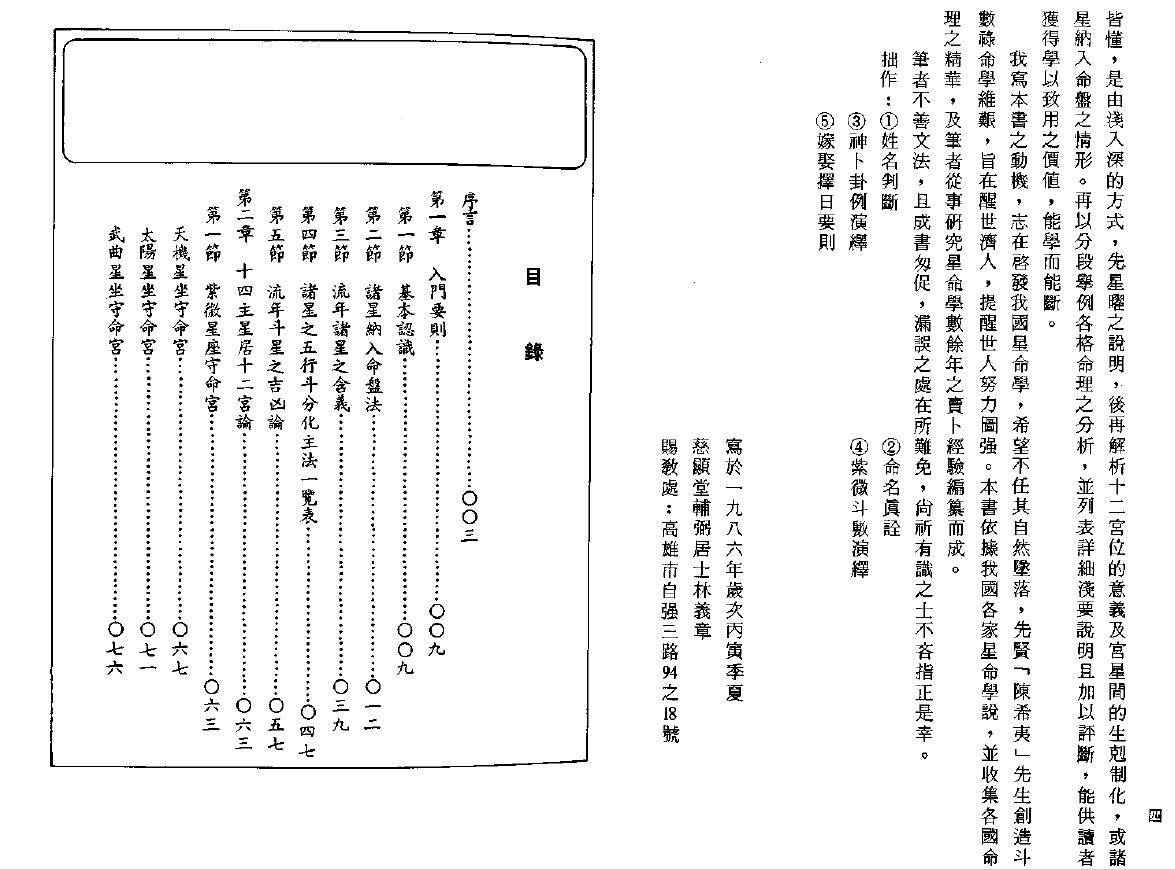 皆懂，是由淺入深的方式，先星曜之說明，後再解析十二宮位的意義及宮星間的生剋制化，或諸
星納入命盤之情形。再以分段舉例各格命理之分析，並列表詳細淺要說明且加以評斷，能供讀者
獲得學以致用之價值，能學而能斷。
我寫本書之動機，志在啓發我國星命學，希望不任其自然墜落，先賢「陳希夷」先生創造斗
數祿命學維艱，旨在醒世濟人，提醒世人努力圖强。本書依據我國各家星命學說，並收集各國命
理之精華，及筆者從事研究星命學數餘年之賣卜經驗編纂而成。
筆者不善文法，且成書匆促，漏誤之處在所難免，尙祈有識之士不吝指正是幸。
拙作：①姓名判斷　②命名眞詮
③神卜卦例演繹　④紫微斗數演繹
⑤嫁娶擇日要則
寫於一九八六年歲次丙寅季夏
慈顯堂輔弼居士林義章
賜敎處：高雄市自强三路94之18號
四
目　錄
序言……〇〇三
第一章　入門要則……〇〇九
第一節　基本認識……〇〇九
第二節　諸星納入命盤法……〇一二
第三節　流年諸星之含義……〇三九
第四節　諸星之五行斗分化主法一覽表……〇四七
第五節　流年斗星之吉凶論……〇五七
第二章　十四主星居十二宮論……〇六三
第一節　紫微星座守命宮……〇六三
天機星坐守命宮……〇六七
太陽星坐守命宮……〇七一
武曲星坐守命宮……〇七六